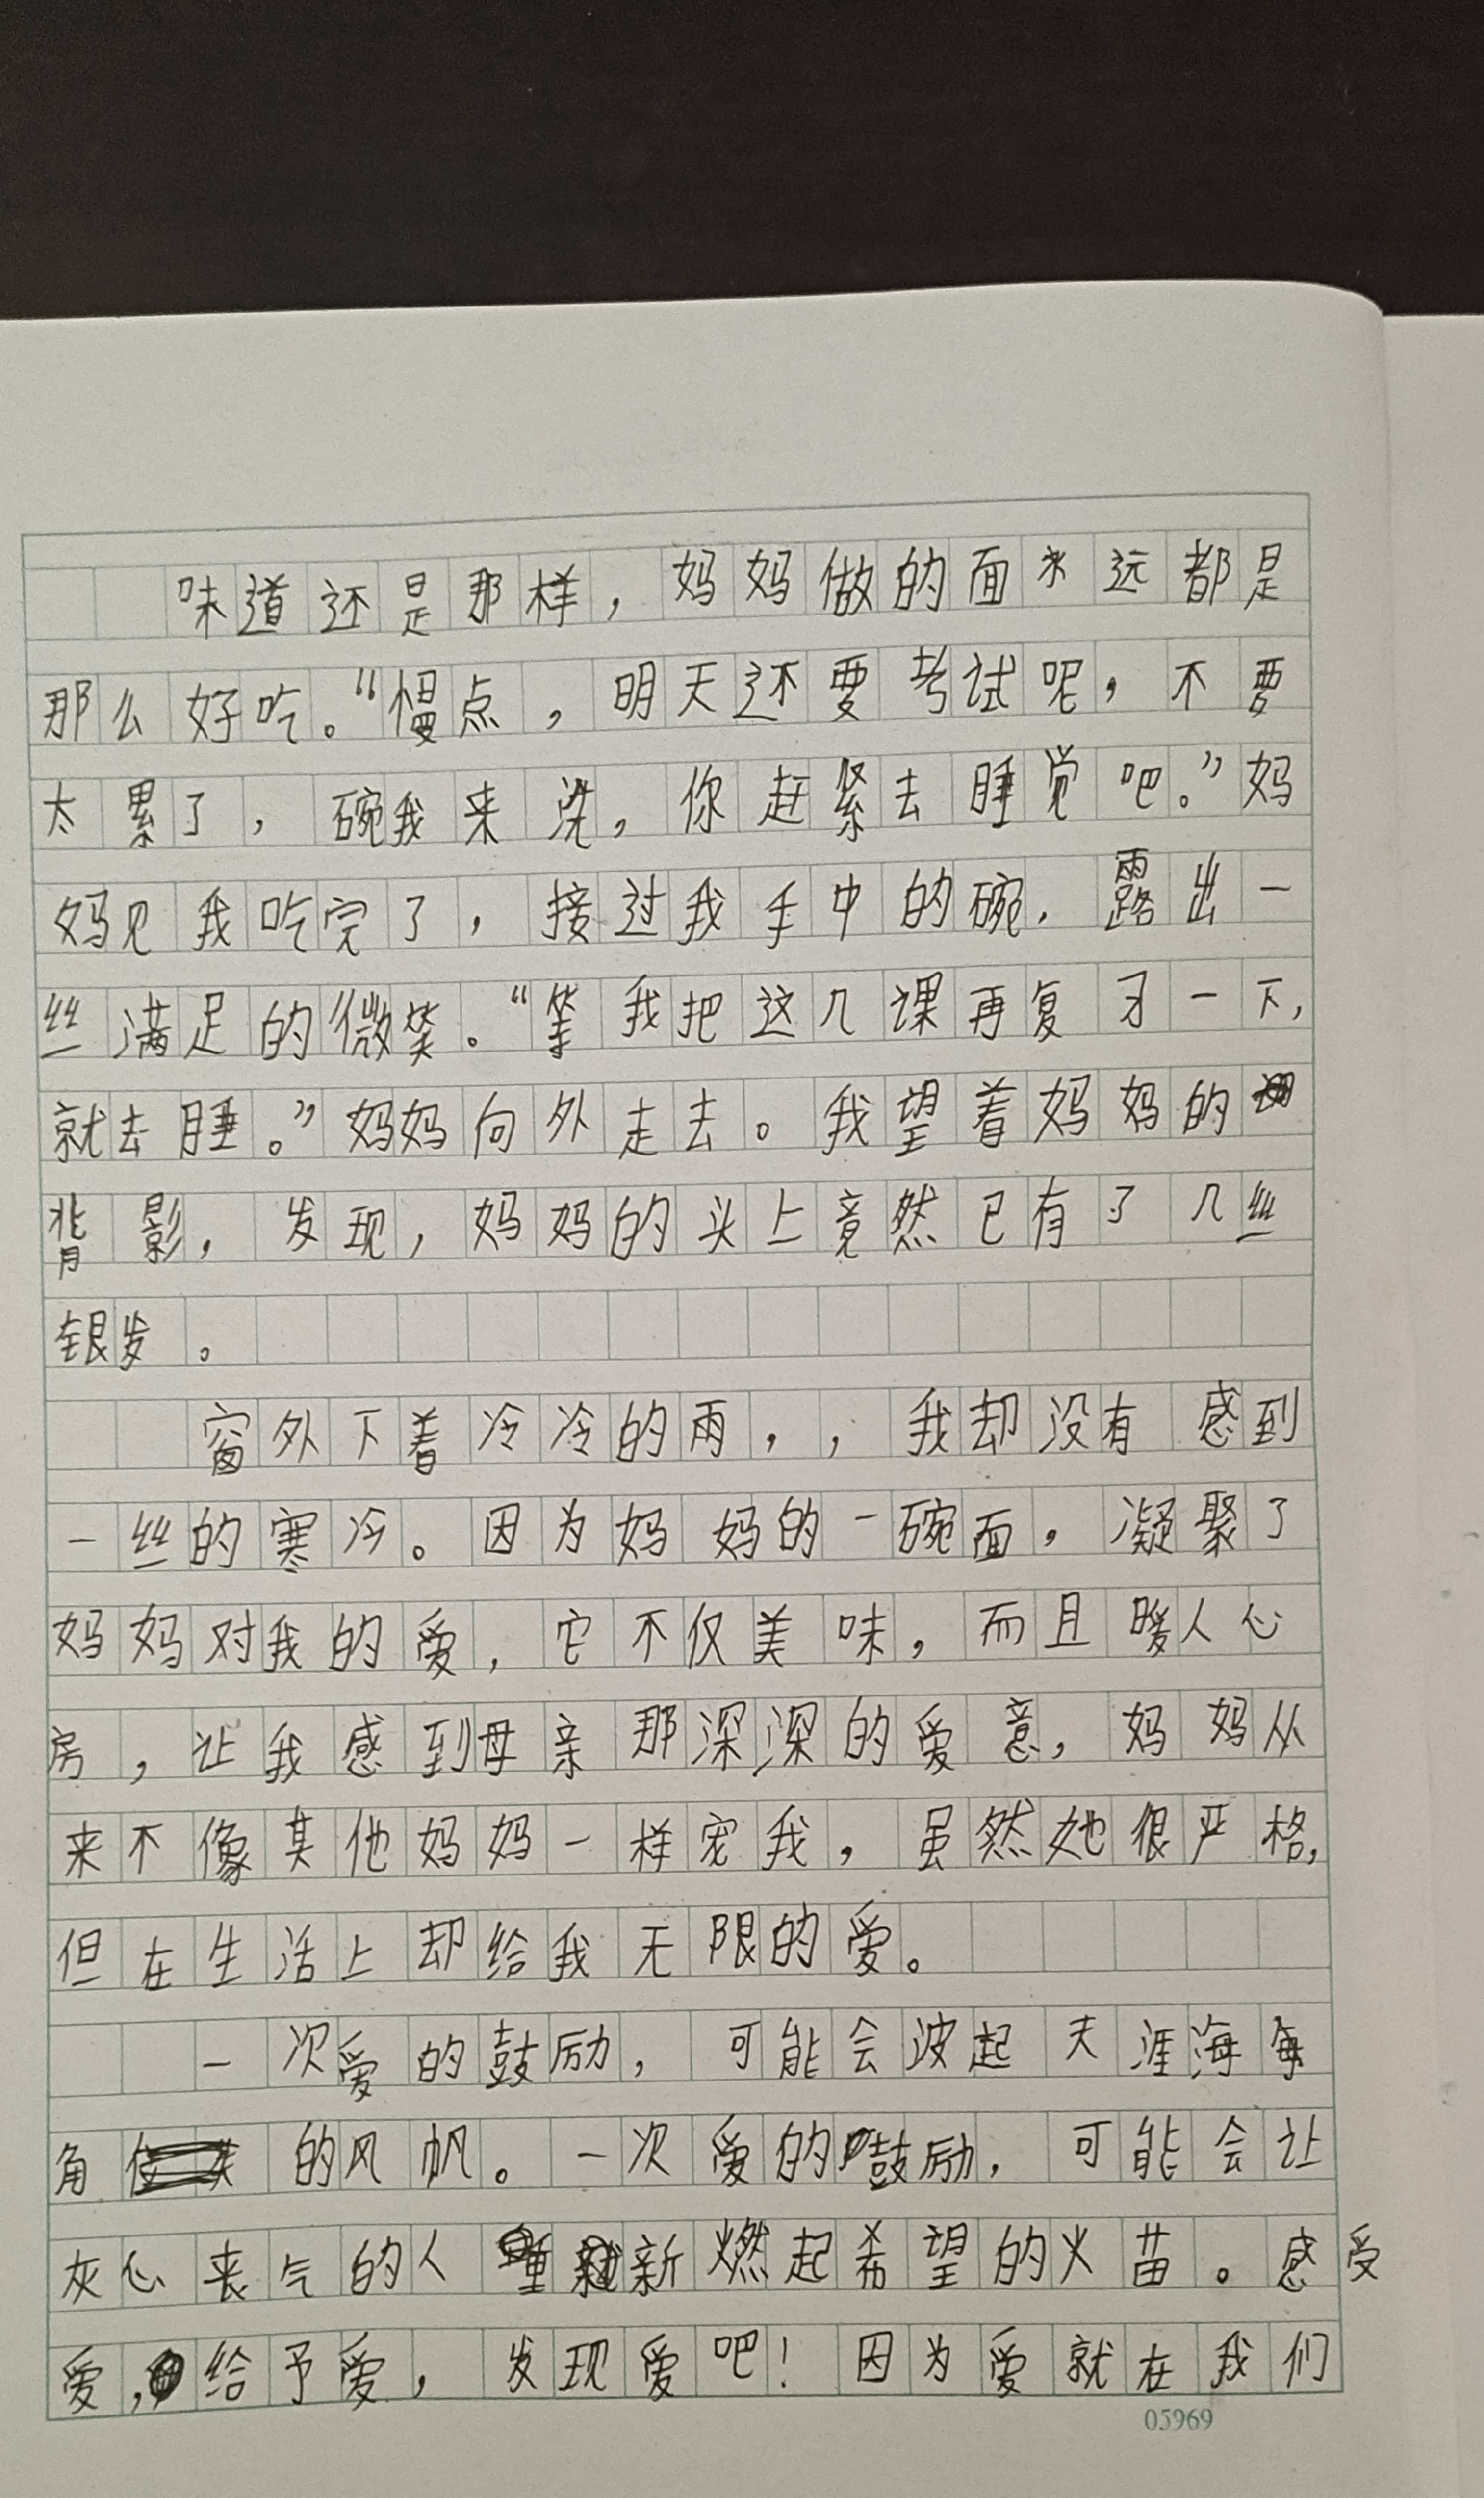 味道还是那样，妈妈做的面永远都是
那么好吃。“慢点，明天还要考试呢，不要
太累了，碗我来洗，你赶紧去睡觉吧。”妈
妈见我吃完了，接过我手中的碗，露出一
丝满足的微笑。“等我把这几课再复习一下，
就去睡。”妈妈向外走去。我望着妈妈的
背影，发现，妈妈的头上竟然已有了几丝
银发。
窗外下着冷冷的雨，，我却没有感到
一丝的寒冷。因为妈妈的一碗面，凝聚了
妈妈对我的爱，它不仅美味，而且暖人心
房，让我感到母亲那深深的爱意，妈妈从
来不像其他妈妈一样宠我，虽然她很严格，
但在生活上却给我无限的爱。
一次爱的鼓励，可能会波起天涯海
角的风帆。一次爱的鼓励，可能会让
灰心丧气的人重新燃起希望的火苗。感受
爱，给予爱，发现爱吧！因为爱就在我们
05969